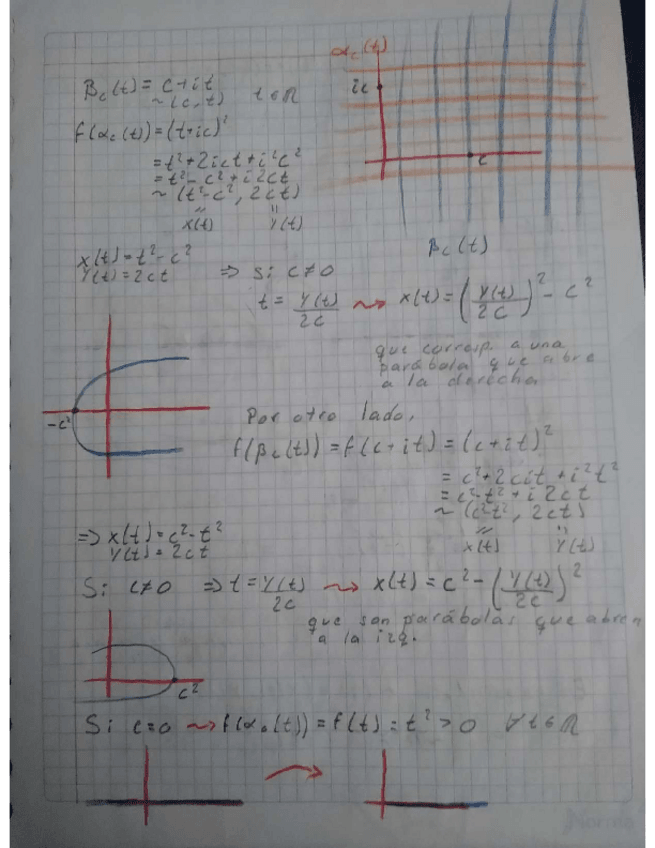 α_c(t)
β_c(t) = c+it
~ (c, t) t∈ℝ
ic
f(α_c(t)) = (t+ic)²
= t²+2ict+i²c²
= t²-c²+i2ct
~ (t²-c², 2ct)
x(t) y(t)
c
β_c(t)
x(t) = t²-c²
y(t) = 2ct ⇒ Si c≠0
t = y(t)/2c ⇝ x(t) = (y(t)/2c)² - c²
que corresp. a una
parábola que abre
a la derecha
-c²
Por otro lado,
f(β_c(t)) = f(c+it) = (c+it)²
= c²+2cit+i²t²
= c²-t²+i2ct
~ (c²-t², 2ct)
x(t) y(t)
⇒ x(t) = c²-t²
y(t) = 2ct
Si c≠0 ⇒ t = y(t)/2c ⇝ x(t) = c² - (y(t)/2c)²
que son parábolas que abren
a la izq.
c²
Si c=0 ⇝ f(α₀(t)) = f(t) = t² > 0 ∀t∈ℝ
Norma